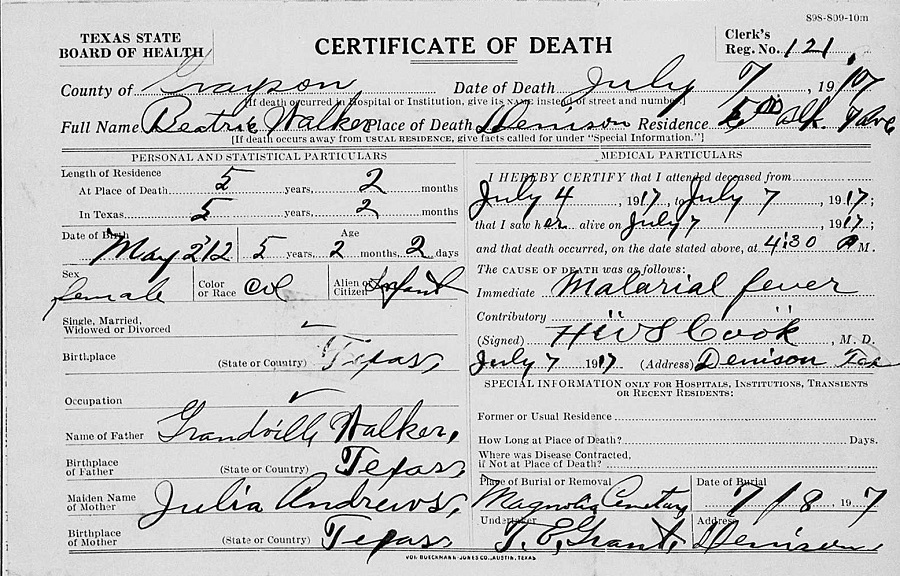 898-809-10m
TEXAS STATE BOARD OF HEALTH
CERTIFICATE OF DEATH
Clerk's Reg. No. 121
County of Grayson Date of Death July 7, 1917
[If death occurred in Hospital or Institution, give its NAME instead of street and number]
Full Name Beatrice Walker Place of Death Denison Residence 500 Blk.
[If death occurs away from USUAL RESIDENCE, give facts called for under "Special Information."]
PERSONAL AND STATISTICAL PARTICULARS
Length of Residence
At Place of Death 5 years, 2 months
In Texas 5 years, 2 months
Date of Birth May 2 '12 Age 5 years, 2 months, 2 days
Sex female Color or Race Col Alien or Citizen Infant
Single, Married, Widowed or Divorced
Birthplace (State or Country) Texas
Occupation
Name of Father Grandville Walker,
Birthplace of Father (State or Country) Texas
Maiden Name of Mother Julia Andrews,
Birthplace of Mother (State or Country) Texas
MEDICAL PARTICULARS
I HEREBY CERTIFY that I attended deceased from
July 4, 1917, to July 7, 1917;
that I saw her alive on July 7, 1917;
and that death occurred, on the date stated above, at 4:30 M.
The CAUSE OF DEATH was as follows:
Immediate Malarial fever
Contributory "
(Signed) Cook, M. D.
July 7 1917 (Address) Denison Tex
SPECIAL INFORMATION ONLY FOR HOSPITALS, INSTITUTIONS, TRANSIENTS OR RECENT RESIDENTS:
Former or Usual Residence
How Long at Place of Death? Days.
Where was Disease Contracted, if Not at Place of Death?
Place of Burial or Removal Magnolia Cemetary Date of Burial 7/8, 1917
Undertaker T. E. Grant, Address Denison
VON BOECKMANN-JONES CO., AUSTIN, TEXAS